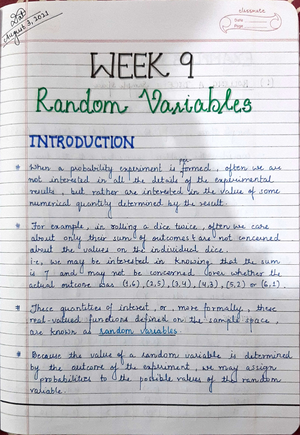 Dat
August 3, 2021
classmate
Date
Page
WEEK 9
Random Variables
INTRODUCTION
* When a probability experiment is performed, often we are
not interested in all the details of the experimental
results, but rather are interested in the value of some
numerical quantity determined by the result.
* For example, in rolling a dice twice, often we care
about only their sum of outcomes & are not concerned
about the values on the individual dice.
i.e, we may be interested in knowing that the sum
is 7 and may not be concerned over whether the
actual outcome was (1,6), (2,5), (3,4), (4,3), (5,2) or (6,1).
* These quantities of interest, or, more formally, these
real-valued functions defined on the sample space,
are known as random variables.
* Because the value of a random variable is determined
by the outcome of the experiment, we may assign
probabilities to the possible values of the random
variable.